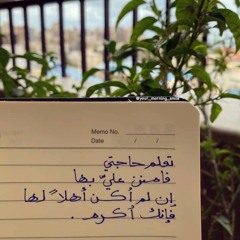 @your_morning_smile
Memo No.
Date / /
تعلم حاجتي
فامنن عليّ بها
إن لم أكن أهلاً لها
فإنك أكرم .